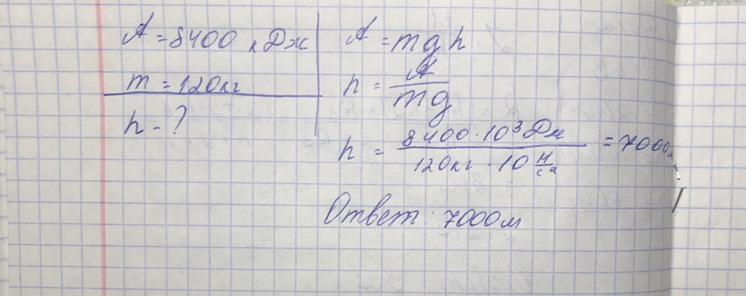 A = 8400 кДж
m = 120кг
h - ?
A = mgh
h = A/mg
h = 8400 · 10³ Дж / 120кг · 10 м/с² = 7000м
Ответ: 7000м